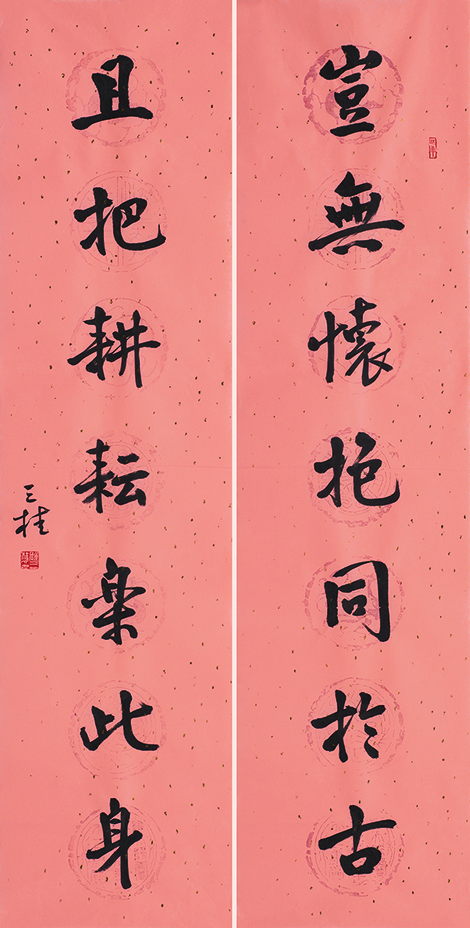 豈無懷抱同於古
且把耕耘樂此身
三桂